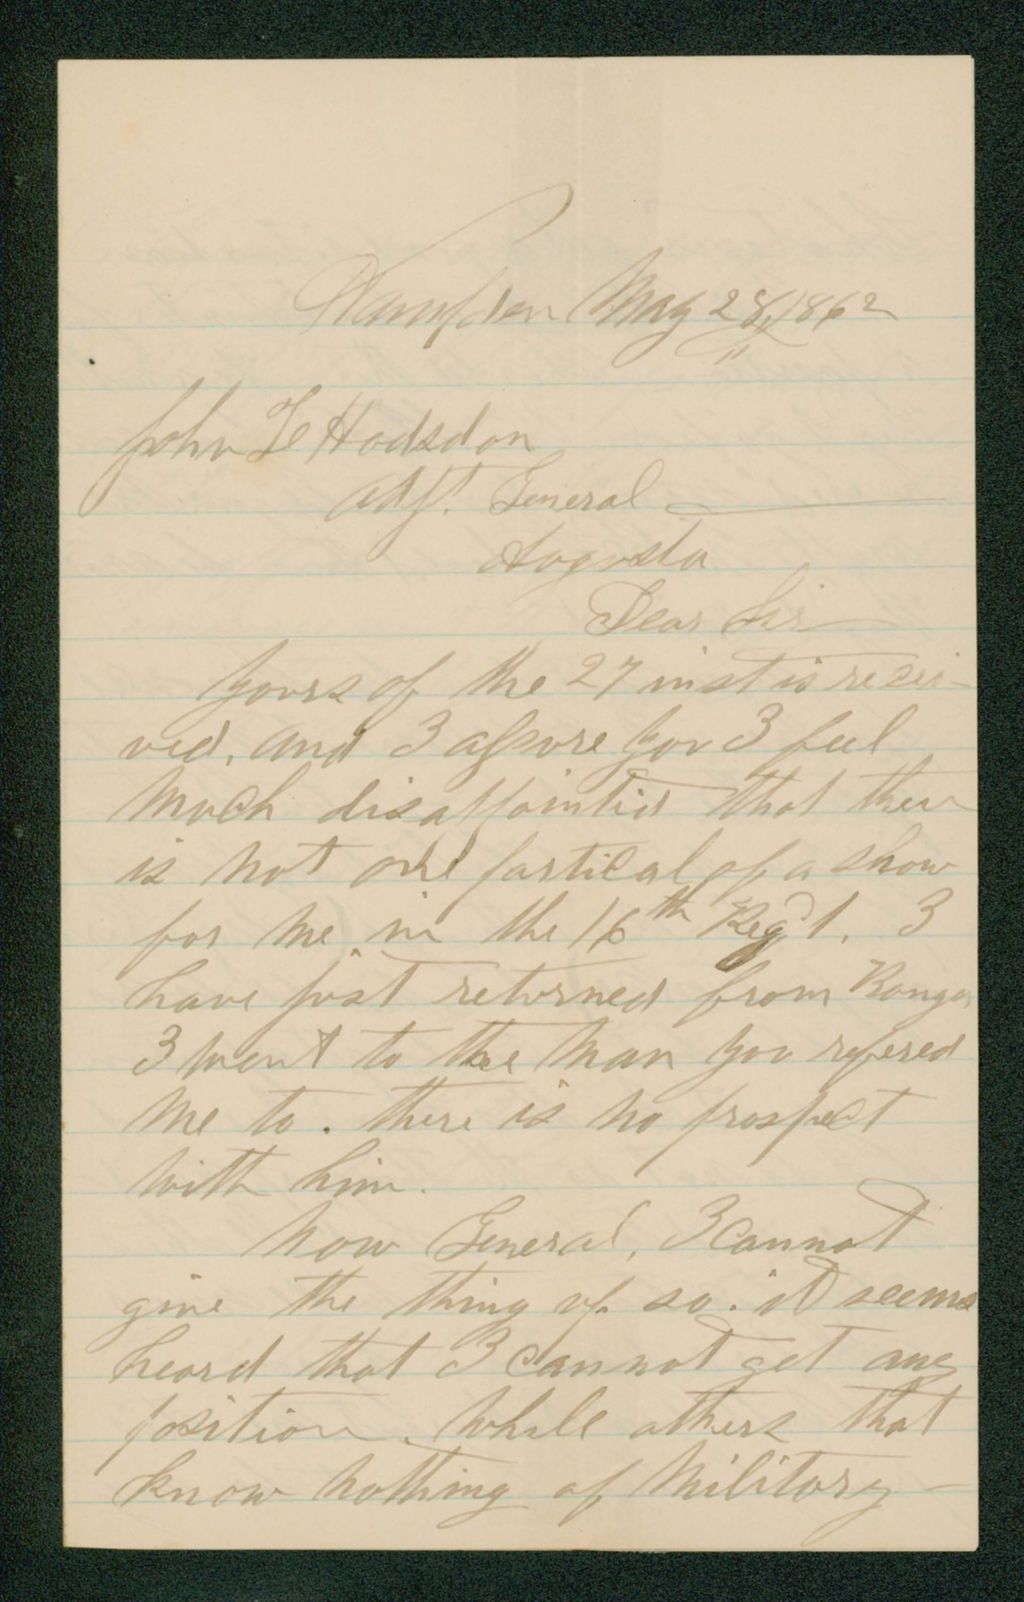 Hampden May 28, 1862
John L Hodsdon
Adjt. General
Augusta
Dear Sir
Yours of the 27 inst is recei-
ved, and I assure you I feel
much disappointed that there
is not one partical of a show
for me in the 16th Regt. I
have just returned from Bangor
I went to the man you refered
me to. there is no prospect
with him.
Now General, I cannot
give the thing up so. it seems
heard that I cannot get any
position. while others that
know nothing of military